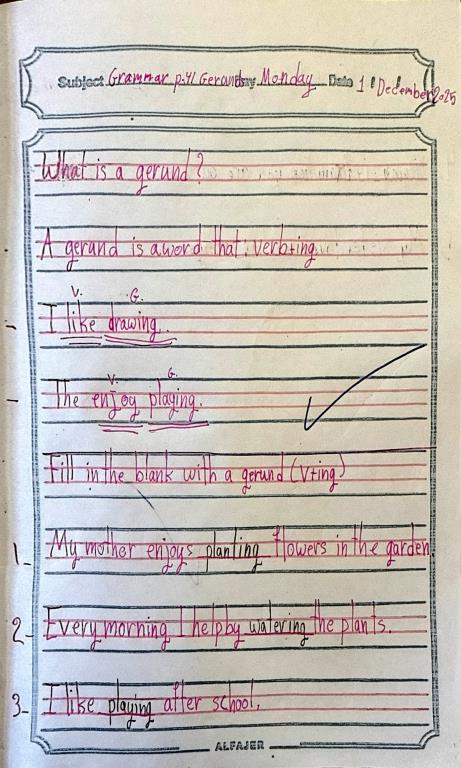 Subject Grammar p:41 Gerunds Day Monday Date 1 December 2025
What is a gerund?
A gerund is a word that verb+ing.
V. G.
I like drawing.
V. G.
The enjoy playing.
Fill in the blank with a gerund (V+ing)
1- My mother enjoys planting flowers in the garden.
2- Every morning I help by watering the plants.
3- I like playing after school.
ALFAJER